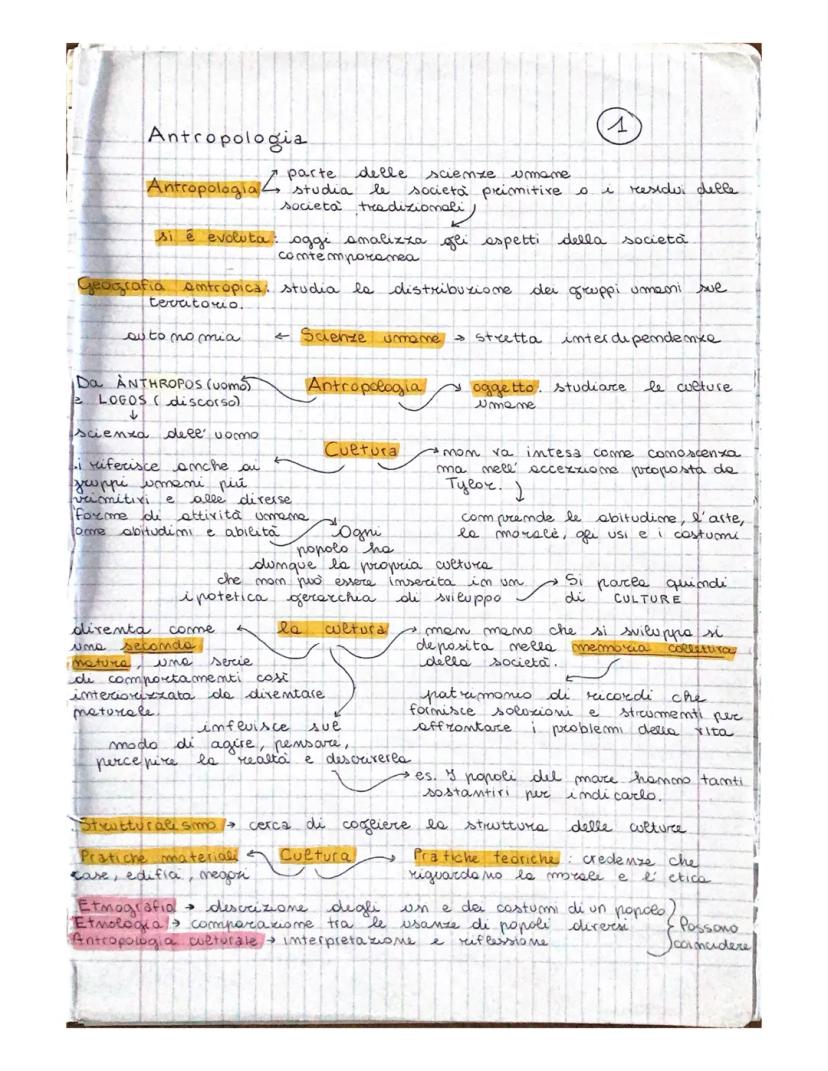 1
Antropologia
parte delle scienze umane
Antropologia → studia le società primitive o i residui delle
società tradizionali
si è evoluta: oggi analizza gli aspetti della società
contemporanea
Geografia antropica: studia la distribuzione dei gruppi umani sul
territorio.
autonomia ← Scienze umane → stretta interdipendenza
Da ÀNTHROPOS (uomo)
e LOGOS (discorso)
↓
scienza dell'uomo
Antropologia
oggetto: studiare le culture
umane
Cultura
non va intesa come conoscenza
ma nell'accezzione proposta da
Tylor.
comprende le abitudine, l'arte,
la morale, gli usi e i costumi
si riferisce anche ai
gruppi umani più
primitivi e alle diverse
forme di attività umane
come abitudini e abilità
Ogni
popolo ha
dunque la propria cultura
che non può essere inserita in un
ipotetica gerarchia di sviluppo
Si parla quindi
di CULTURE
la cultura
diventa come
una seconda
natura, una serie
di comportamenti così
interiorizzata da diventare
naturale.
man mano che si sviluppa si
deposita nella memoria collettiva
della società.
patrimonio di ricordi che
fornisce soluzioni e strumenti per
affrontare i problemi della vita
influisce sul
modo di agire, pensare,
percepire la realtà e descriverla
es. I popoli del mare hanno tanti
sostantivi per indicarlo.
Strutturalismo → cerca di cogliere la struttura delle culture
Pratiche materiali
case, edifici, negozi
Cultura
Pratiche teoriche: credenze che
riguardano la morale e l'etica
Etnografia → descrizione degli usi e dei costumi di un popolo
Etnologia → comparazione tra le usanze di popoli diversi
Antropologia culturale → interpretazione e riflessione
Possono
coincidere